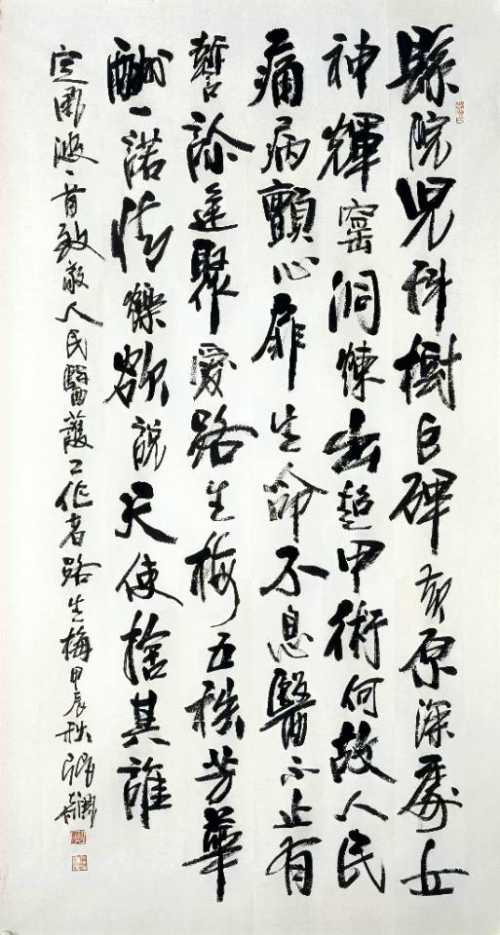 縣院兒科樹巨碑黄原深處立
神輝窯洞煉出超甲術何故人民
痛病顫心扉生命不息醫不止有
誓診途聚愛路生梅五秩芳華
酬一諾情爍欲說天使捨其誰
定風波一首致敬人民醫護工作者路生梅甲辰秋